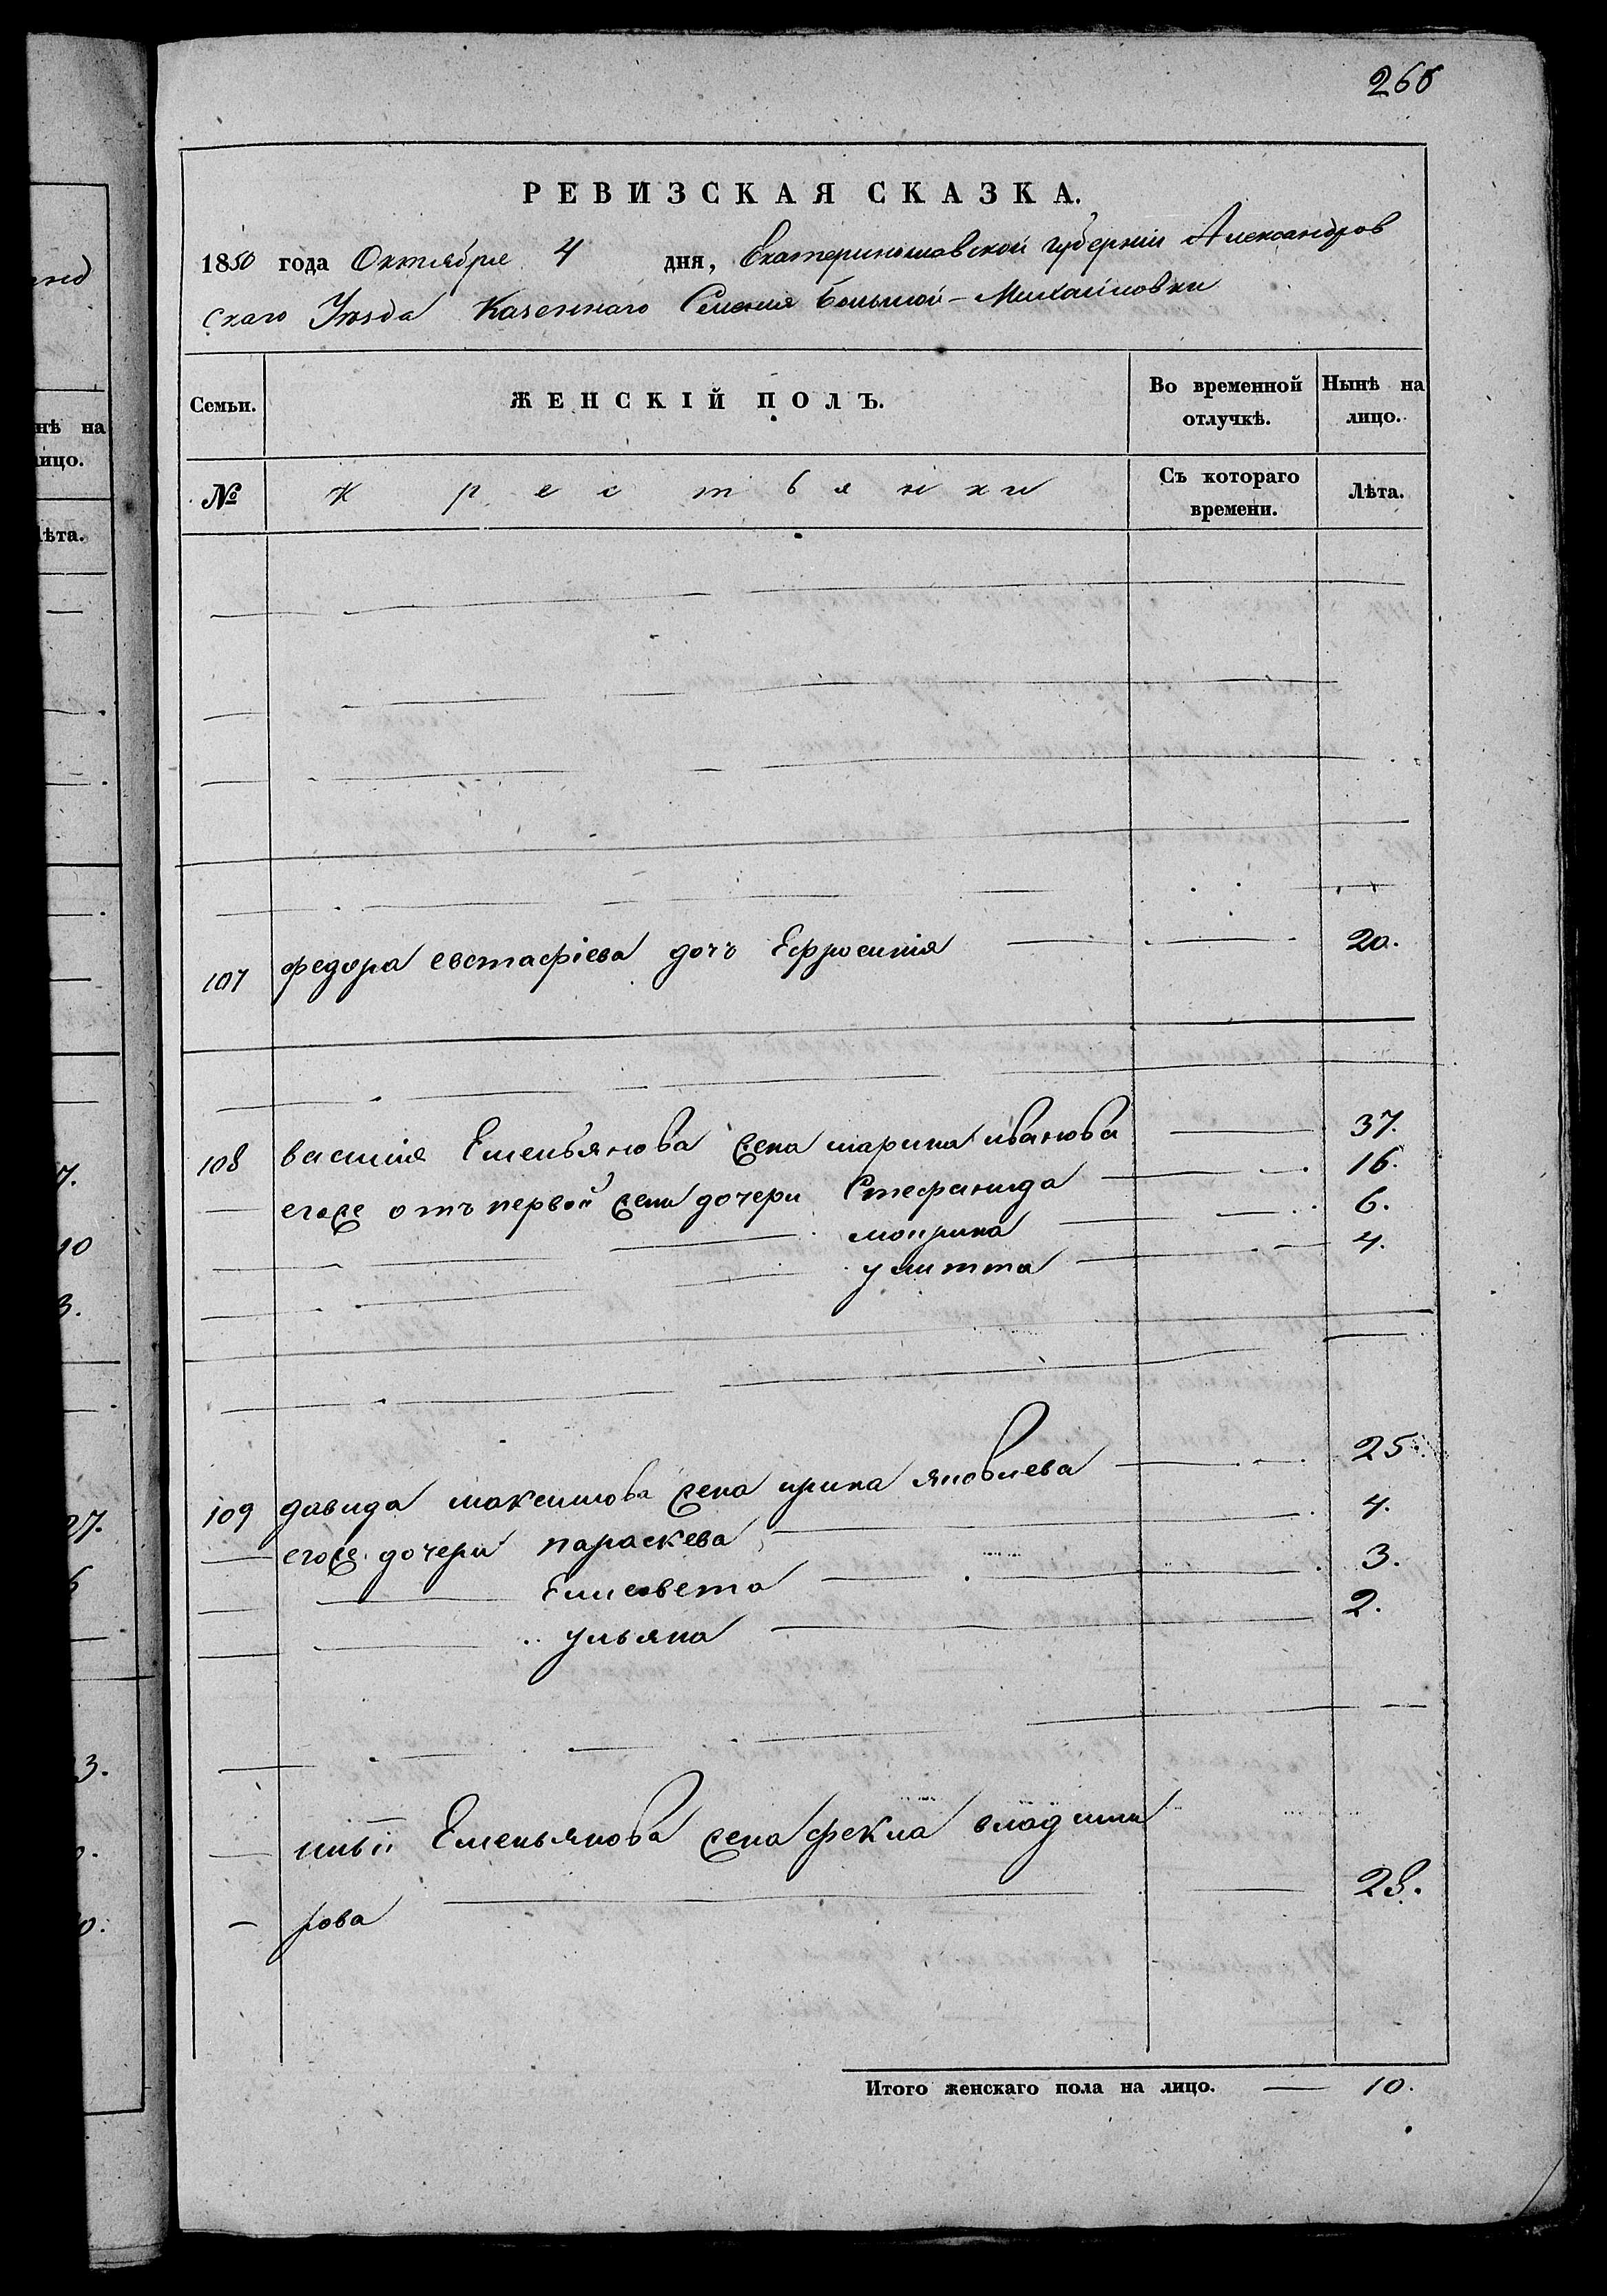 268
РЕВИЗСКАЯ СКАЗКА.
1850 года Октября 4 дня, Екатеринославской губерніи Александров
скаго Уѣзда Казеннаго Селенія Большой-Михайловки
Семьи. ЖЕНСКІЙ ПОЛЪ. Во временной отлучкѣ. Нынѣ на лицо.
№ Крестьянки Съ котораго времени. Лѣта.
107 федора евстафіева дочь Ефросинія 20.
108 василія Емельянова жена марина иванова 37.
егоже отъ первой жены дочери Стефанида 16.
6.
улитта 4.
109 давида максимова жена ирина яковлева 25.
егоже дочери параскева 4.
Елисавета 3.
ульяна 2.
ильи Емельянова жена фекла владими
рова 28.
Итого женскаго пола на лицо. 10.
нѣ на
лицо.
ѣта.
7.
10
3.
27.
3.